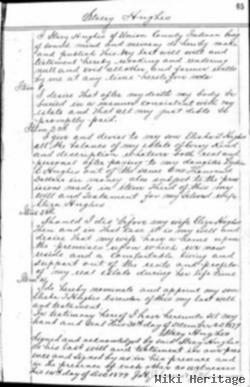 65
Stacy Hughes
I Stacy Hughes of Union County Indiana being
of sound mind and memory do hereby make
and publish this my last will and
testament hereby revoking and rendering
null and void all other and former wills
by me at any time heretofore made
Item 1
I desire that after my death my body be
buried in a manner consistent with my
estate and that all my just debts be
promptly paid.
Item 2nd
I give and devise to my son Hughes
all the balance of my estate of every kind
and description whatever both real and
personal after paying to my
Hughes out of the same
Dollars in money also subject to the pro
visions made in Item Third of this my
Will and Testament for my beloved wife
Eliza Hughes
Item 3rd
Should I die before my wife Eliza Hughes
then and in that case it is my will and
desire that my wife have a home upon
the premises upon which we now
reside and a comfortable living and
support out of the rents and profits
of my real estate during her life time
Item 4
I do hereby nominate and appoint my son
Hughes Executor of this my last will
and testament
In testimony hereof I have hereunto set my
hand and seal this 30th day of December AD 1879
Stacy Hughes
Signed and acknowledged by said Stacy Hughes
as his last will and testament in our pres
ence and signed by us in his presence and
in the presence of each other as witnesses
this day of Dec 1879
Miki Heritage